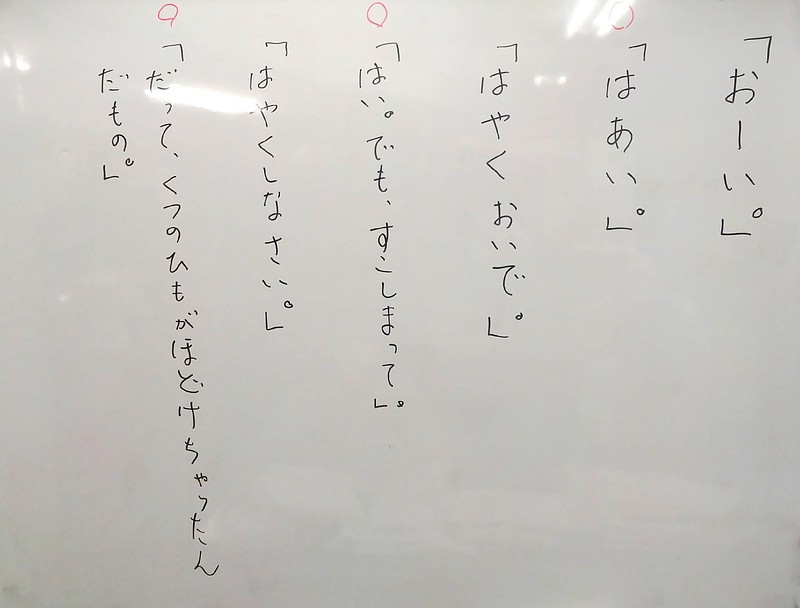 「おーい。」
「はあい。」
「はやくおいで。」
「はい。でも、すこしまって。」
「はやくしなさい。」
「だって、くつのひもがほどけちゃったん
だもの。」